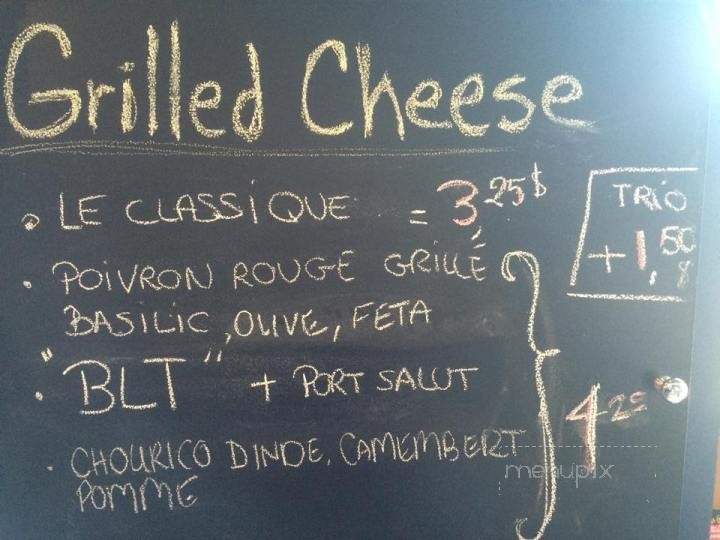 Grilled Cheese
• LE CLASSIQUE = 3,25$
TRIO
+1,50
• POIVRON ROUGE GRILLÉ
BASILIC, OLIVE, FETA
• "BLT" + PORT SALUT
4
• CHOURICO DINDE, CAMEMBERT
POMME
menupix